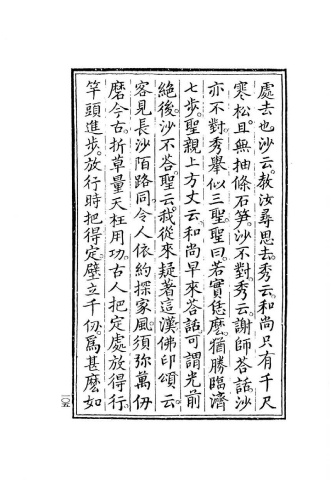 處去也沙云。教汝尋思去。秀云。和尚只有千尺
寒松。且無抽條石笋。沙不對。秀云。謝師答話。沙
亦不對。秀舉似三聖。聖曰。若實恁麼。猶勝臨濟
七步。聖親上方丈云。和尚早來答話。可謂光前
絶後。沙不答。聖云。我從來疑著這漢。佛印頌云。
客見長沙陌路同。令人依約探家風。須弥萬仞
磨今古。折草量天枉用功。古人把定處放得行。
竿頭進步。放行時把得定。壁立千仞。為甚麼如
一〇五